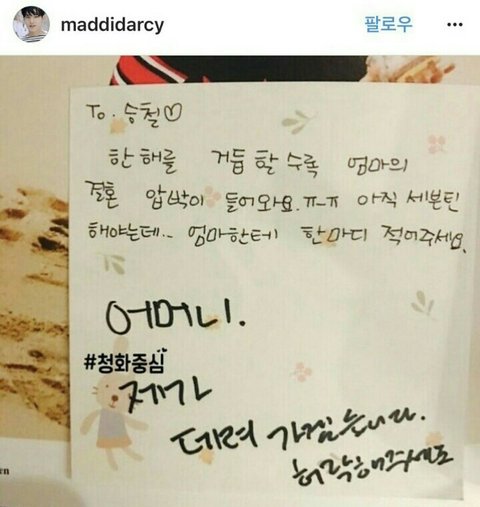 maddidarcy
팔로우
To. 승철♡
한 해를 거듭 할 수록 엄마의
결혼 압박이 들어와요.ㅠㅡㅠ 아직 세븐틴
해야는데... 엄마한테 한마디 적어주세요.
어머니.
#청화중심
제가
데려 가겠습니다.
허락해주세요
en